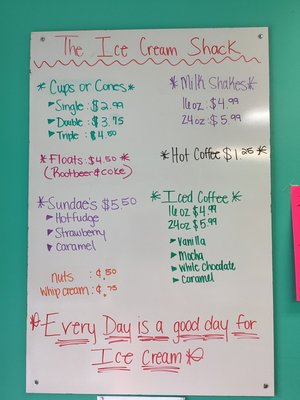 The Ice Cream Shack
*Cups or Cones*
▸ Single: $2.99
▸ Double: $3.75
▸ Triple: $4.50
*Milk Shakes*
16oz: $4.99
24oz: $5.99
*Floats: $4.50*
(Rootbeer & coke)
*Hot Coffee $1.25*
*Sundae's $5.50
▸ Hot fudge
▸ Strawberry
▸ Caramel
*Iced Coffee*
16oz $4.99
24oz $5.99
▸ Vanilla
▸ Mocha
▸ White Chocolate
▸ Caramel
nuts : ¢.50
whip cream: ¢.75
*Every Day is a good day for
Ice Cream*